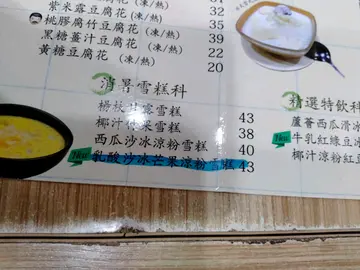 紫米露豆腐花(凍/熱) 35
桃膠腐竹豆腐花(凍/熱) 39
黑糖薑汁豆腐花(凍/熱) 22
黃糖豆腐花(凍/熱) 20
消暑雪糕科
楊枝甘露雪糕 43
椰汁紫米雪糕 38
西瓜沙冰涼粉雪糕 40
New 乳酸沙冰芒果涼粉雪糕 43
精選特飲科
蘆薈西瓜
New 牛乳紅綠豆冰
椰汁涼粉紅